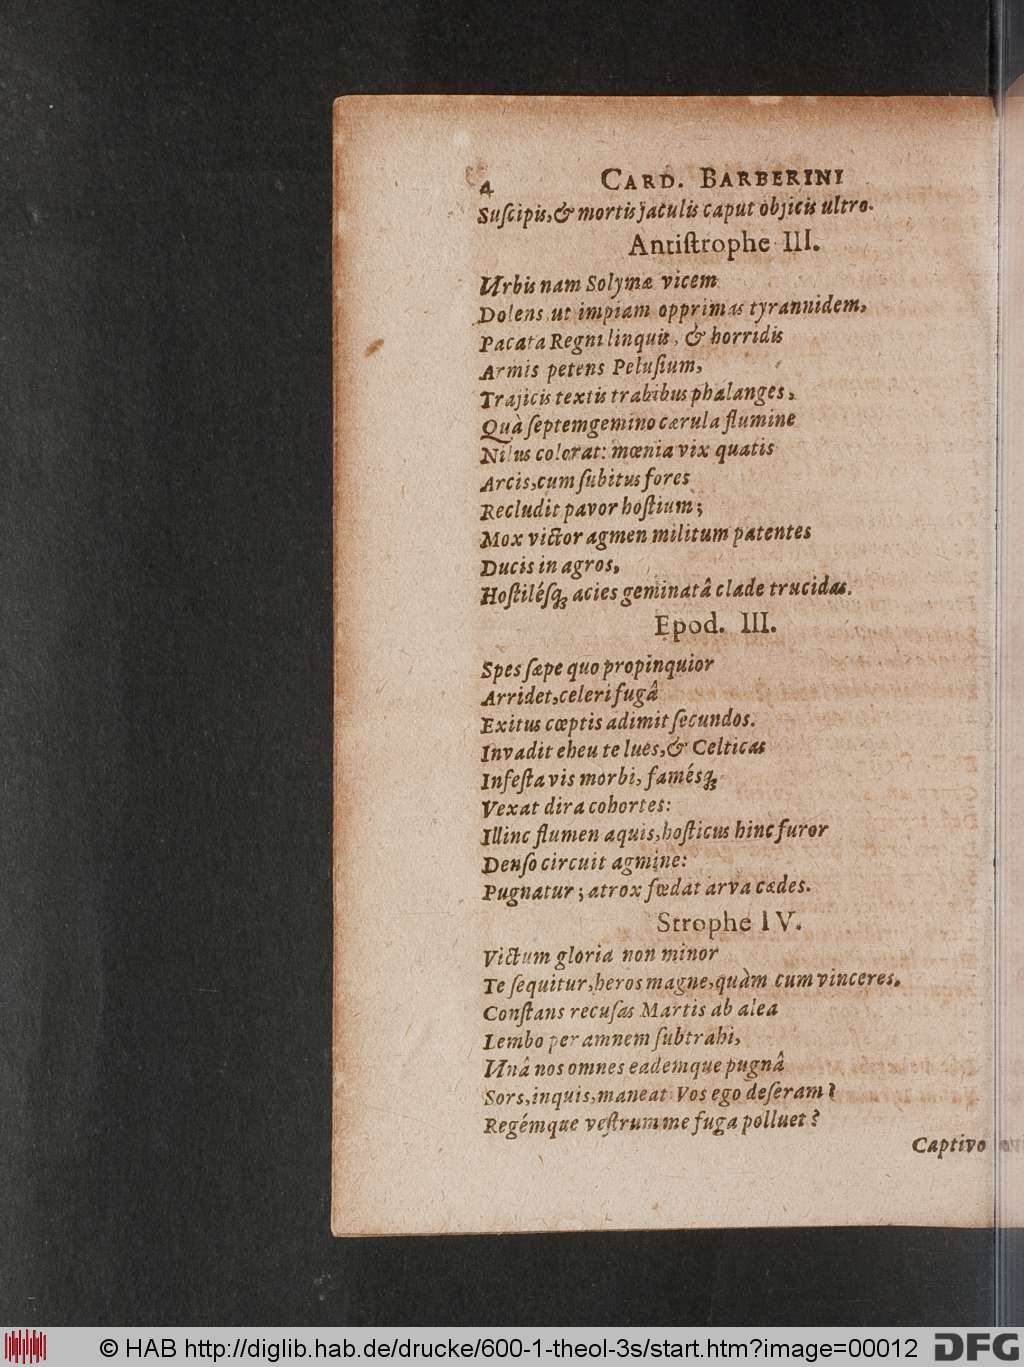 4 CARD. BARBERINI
Suſcipis, & mortis jaculis caput objicis ultro.
Antiſtrophe III.
Urbis nam Solymæ vicem
Dolens ut impiam opprimas tyrannidem,
Pacata Regni linquis, & horridis
Armis petens Peluſium,
Trajicis textis trabibus phalanges,
Quà ſeptemgemino cærula flumine
Nilus colorat: mœnia vix quatis
Arcis, cum ſubitus fores
Recludit pavor hoſtium;
Mox victor agmen militum patentes
Ducis in agros,
Hoſtiléſq; acies geminatâ clade trucidas.
Epod. III.
Spes ſæpe quo propinquior
Arridet, celeri fugâ
Exitus cœptis adimit ſecundos.
Invadit eheu te lues, & Celticas
Infeſta vis morbi, famésq;
Vexat dira cohortes:
Illinc flumen aquis, hoſticus hinc furor
Denſo circuit agmine:
Pugnatur; atrox fœdat arva cædes.
Strophe IV.
Victum gloria non minor
Te ſequitur, heros magne, quàm cum vinceres.
Conſtans recuſas Martis ab alea
Lembo per amnem ſubtrahi,
Unâ nos omnes eademque pugnâ
Sors, inquis, maneat Vos ego deſeram?
Regémque veſtrum me fuga polluet?
Captivo
© HAB http://diglib.hab.de/drucke/600-1-theol-3s/start.htm?image=00012 DFG